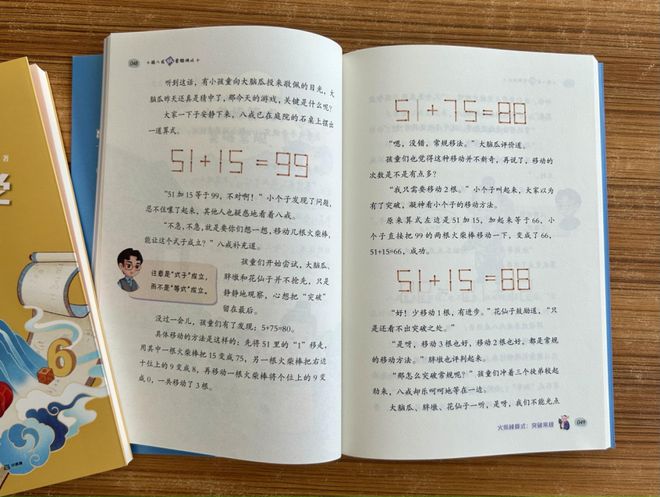 048
听到这话，有小孩童向大脑瓜投来敬佩的目光，大
脑瓜昨天还真是猜中了，那今天的游戏，关键是什么呢？
大家一下子安静下来，八戒已在庭院的石桌上摆出
一道算式。
51+15=99
“51加15等于99，不对啊！”小个子发现了问题，
忍不住嚷了起来，其他人也疑惑地看着八戒。
“不急，不急，就是要你们想一想，移动几根火柴棒，
能让这个式子成立？”八戒补充道。
注意是“式子”成立，
而不是“等式”成立。
孩童们开始尝试，大脑瓜、
胖墩和花仙子并不抢先，只是
静静地观察，心想把“突破”
留在最后。
没过一会儿，孩童们有了发现：5+75=80。
具体移动的方法是这样的：先将51里的“1”移走，
用其中一根火柴棒把15变成75，另一根火柴棒把右边
十位上的9变成8，再移动一根火柴棒将个位上的9变
成0，一共移动了3根。
51+75=88
“嗯，没错，常规移法。”大脑瓜评价道。
孩童们也觉得这种移动并不新奇，再说了，移动的
次数是不是有点多？
“我只需要移动2根。”小个子叫起来，大家以为
有了突破，凝神看小个子的移动方法。
原来算式左边是51加15，加起来等于66，小
个子直接把99的两根火柴棒移动一下，变成了66，
51+15=66，成功。
51+15=88
“好！少移动1根，有进步。”花仙子鼓励道，“只
是还看不出突破之处。”
“是呀，移动3根也好，移动2根也好，都是常规
的移动方法。”胖墩也评判起来。
“那怎么突破常规呢？”孩童们冲着三个徒弟较起
劲来，八戒却乐呵呵地等在一边。
大脑瓜、胖墩、花仙子一听，是呀，我们不能光点
火柴棒算式：突破常规
049
6
著